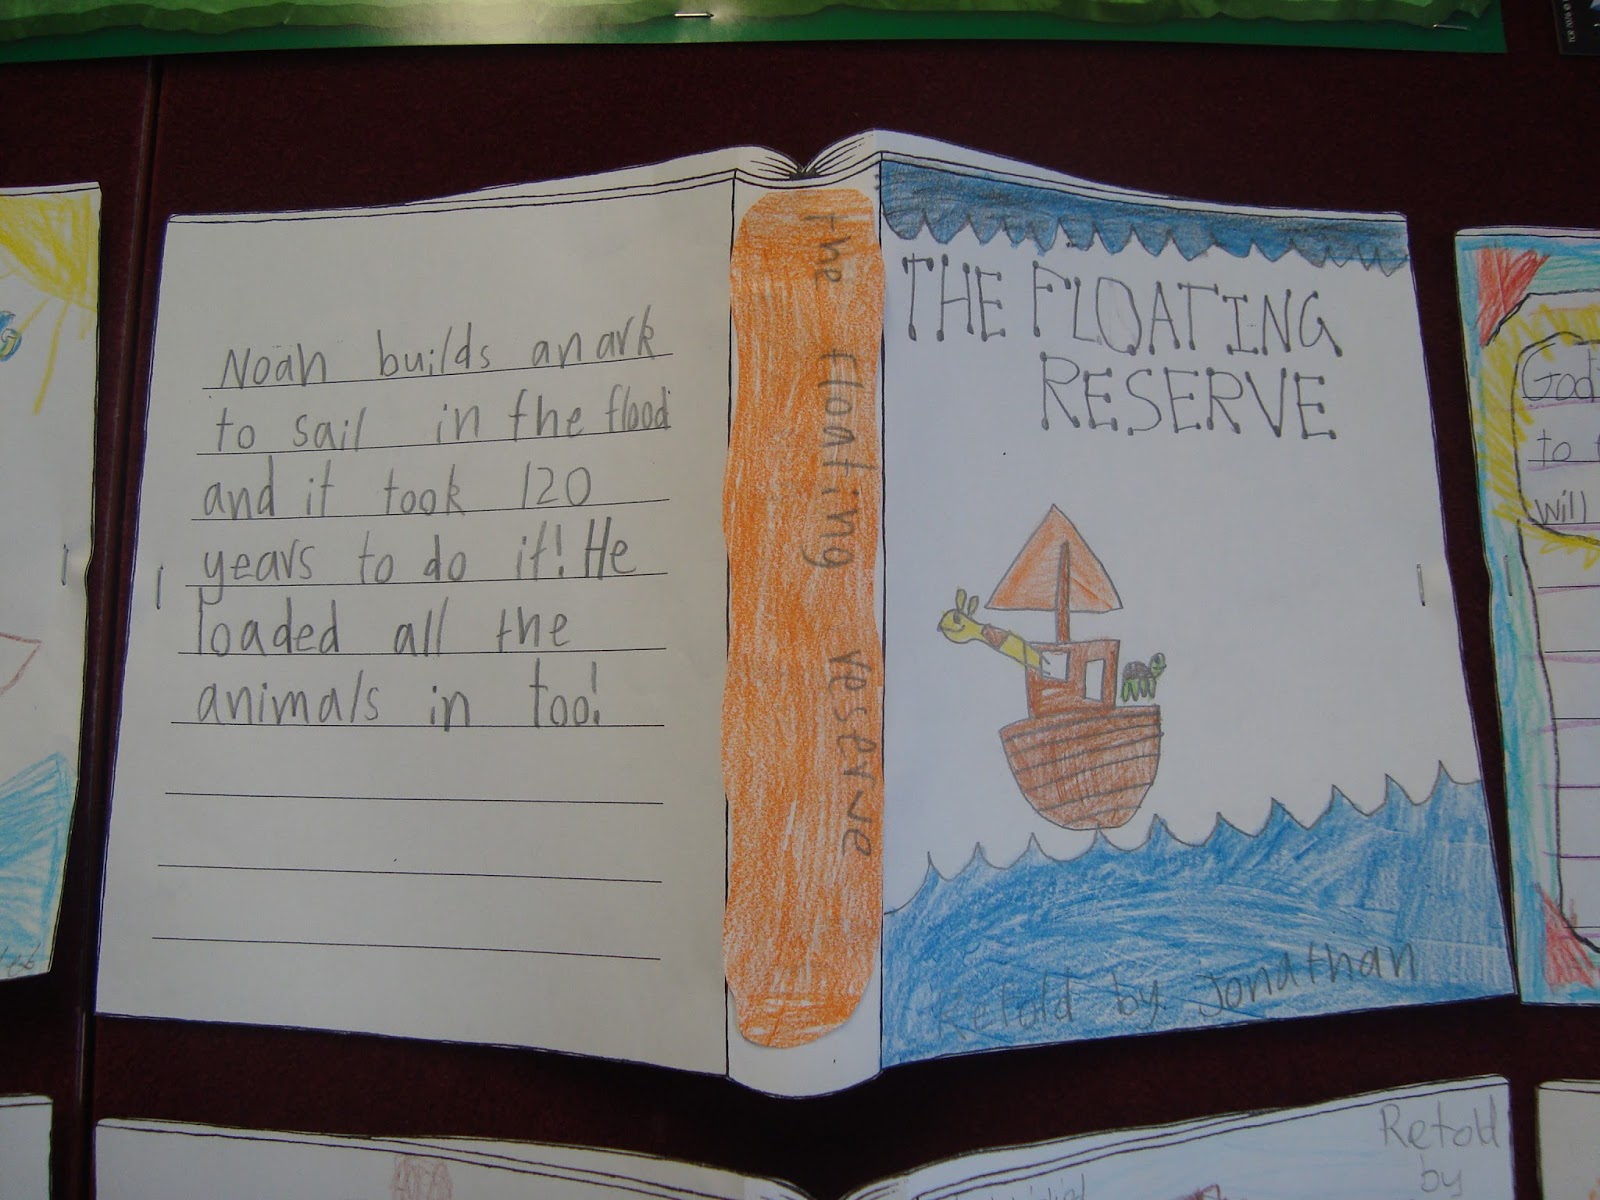 Noah builds an ark
to sail in the flood
and it took 120
years to do it! He
loaded all the
animals in too!
the floating reserve
THE FLOATING
RESERVE
Retold by Jonathan
God
to
will
Retold
by